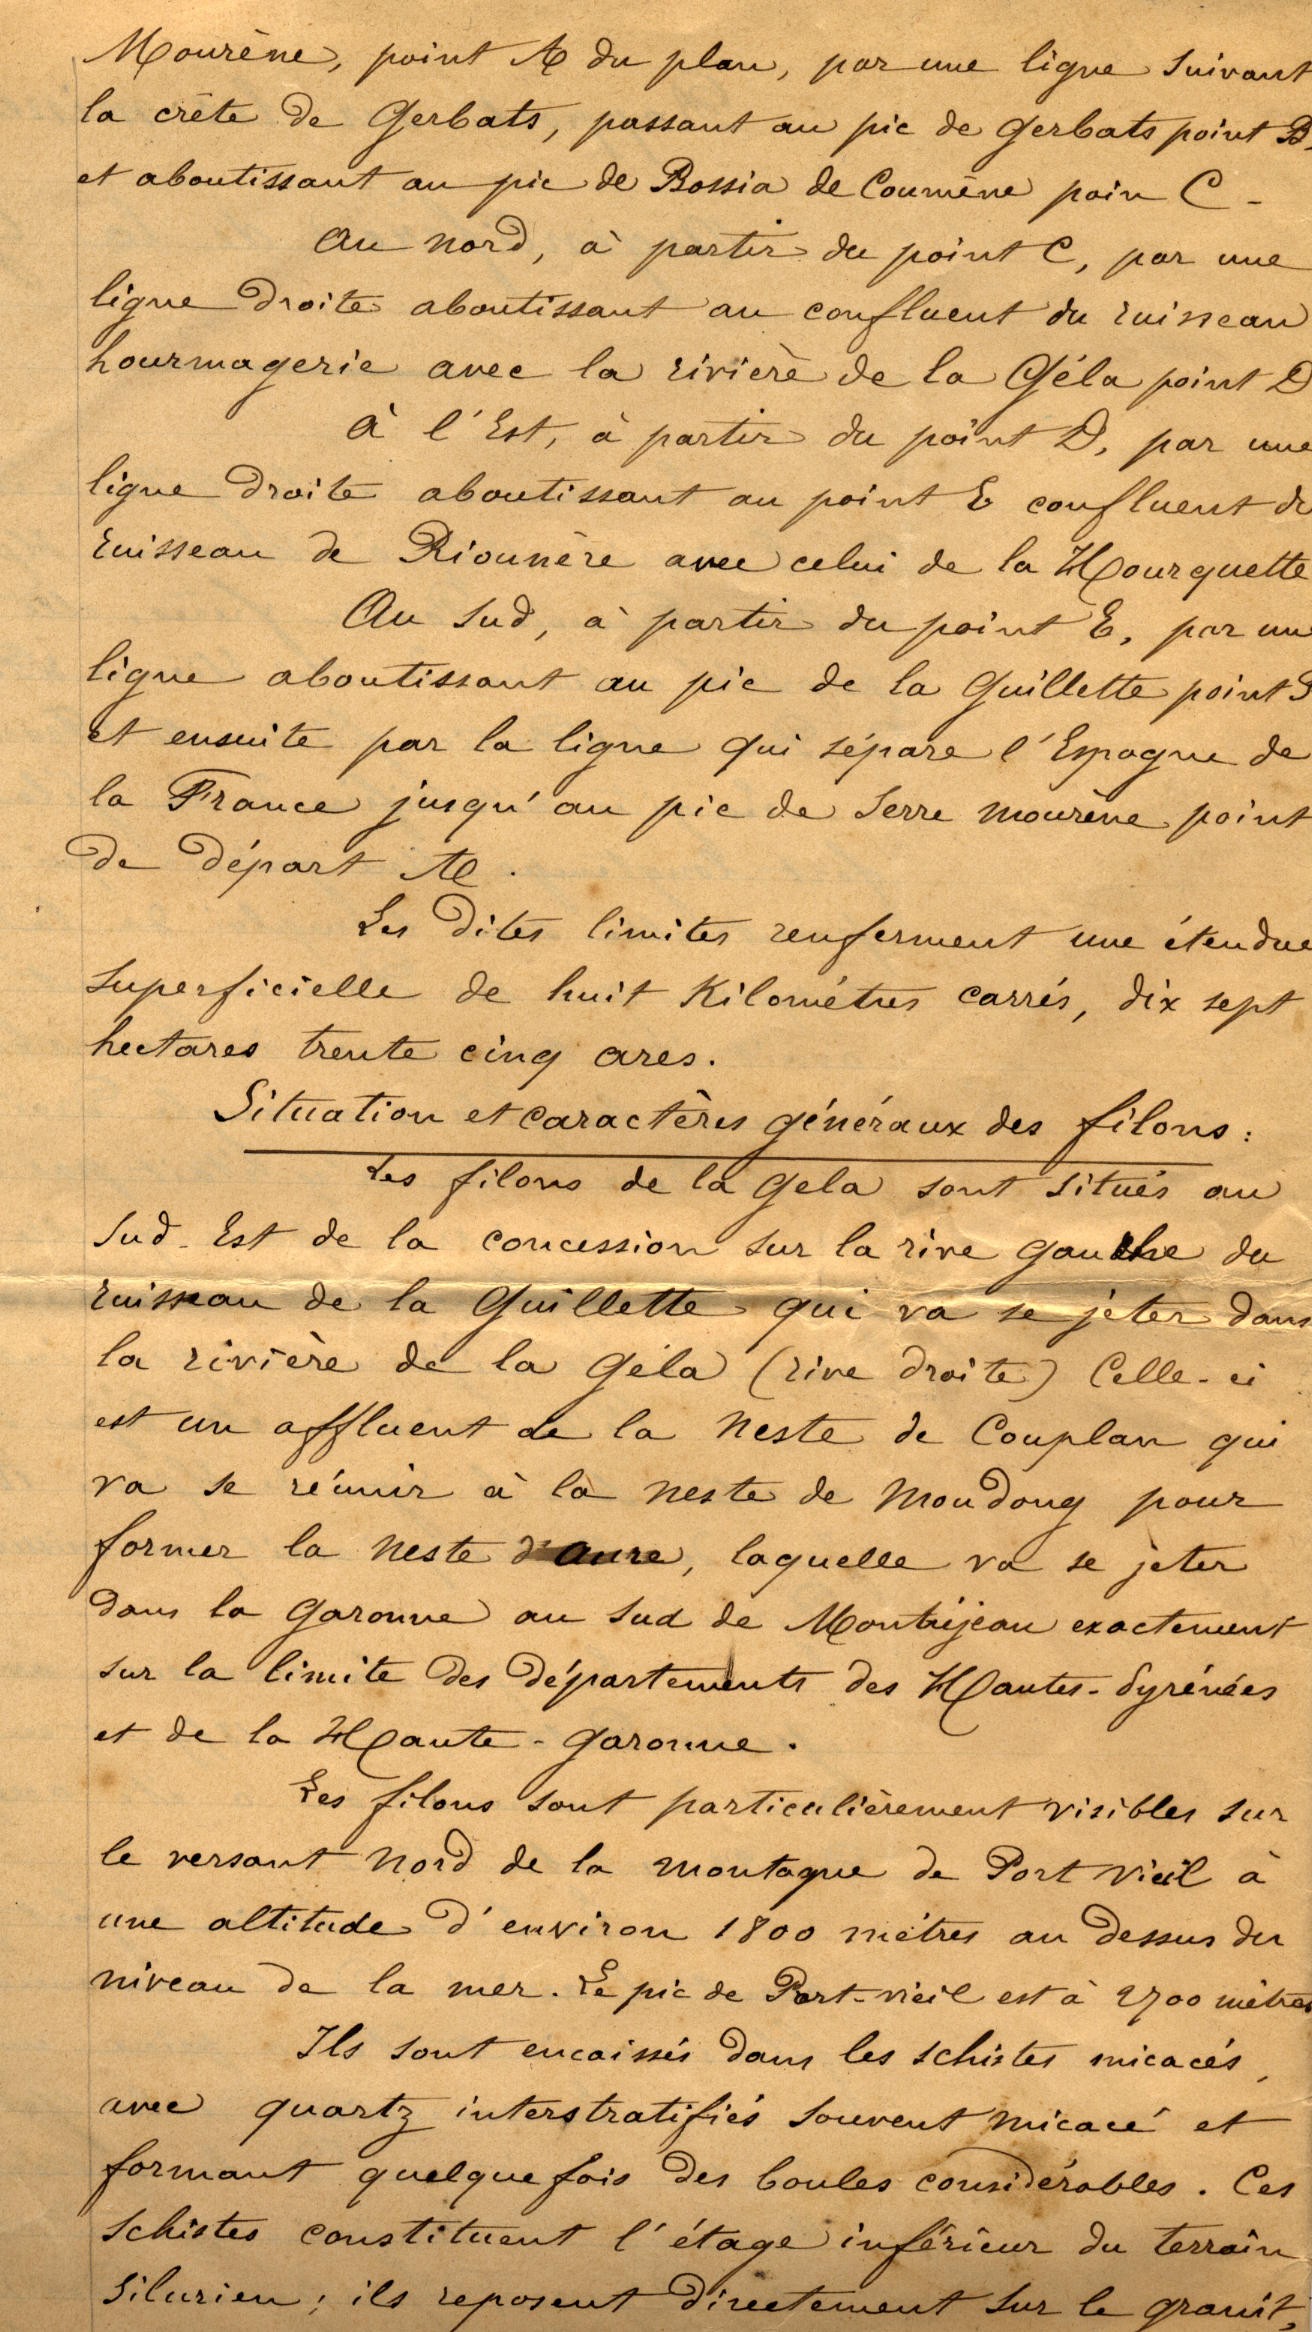 Mourène, point A du plan, par une ligne suivant
la crête de Gerbats, passant au pic de Gerbats point B,
et aboutissant au pic de Bossia de Coumène poin C -
Au nord, à partir du point C, par une
ligne droite aboutissant au confluent du ruisseau
hourmagerie avec la rivière de la Géla point D
À l'Est, à partir du point D, par une
ligne droite aboutissant au point E confluent du
ruisseau de Riounère avec celui de la Hourquette
Au Sud, à partir du point E, par une
ligne aboutissant au pic de la Guillette point
et ensuite par la ligne qui sépare l'Espagne de
la France jusqu'au pic de Serre Mourène point
de départ A.
Les dites limites renferment une étendue
superficielle de huit Kilométres carrés, dix sept
hectares trente cinq ares.
Situation et caractères généraux des filons :
Les filons de la Gela sont situés au
Sud-Est de la concession sur la rive gauche du
ruisseau de la Guillette qui va se jeter dans
la rivière de la Géla (rive droite) Celle-ci
est un affluent de la Neste de Couplan qui
va se réunir à la neste de Moudong pour
former la neste d'Aure, laquelle va se jeter
dans la Garonne au Sud de Montréjeau exactement
sur la limite des départements des Hautes-Pyrénées
et de la Haute-Garonne.
Les filons sont particulièrement visibles sur
le versant Nord de la montagne de Port Vieil à
une altitude d'environ 1800 mètres au dessus du
niveau de la mer. Le pic de Port-vieil est à 2700 mètres
Ils sont encaissés dans les schistes micacés,
avec quartz interstratifiés souvent micacé et
formant quelquefois des boules considérables. Ces
schistes constituent l'étage inférieur du terrain
silurien ; ils reposent directement sur le granit,